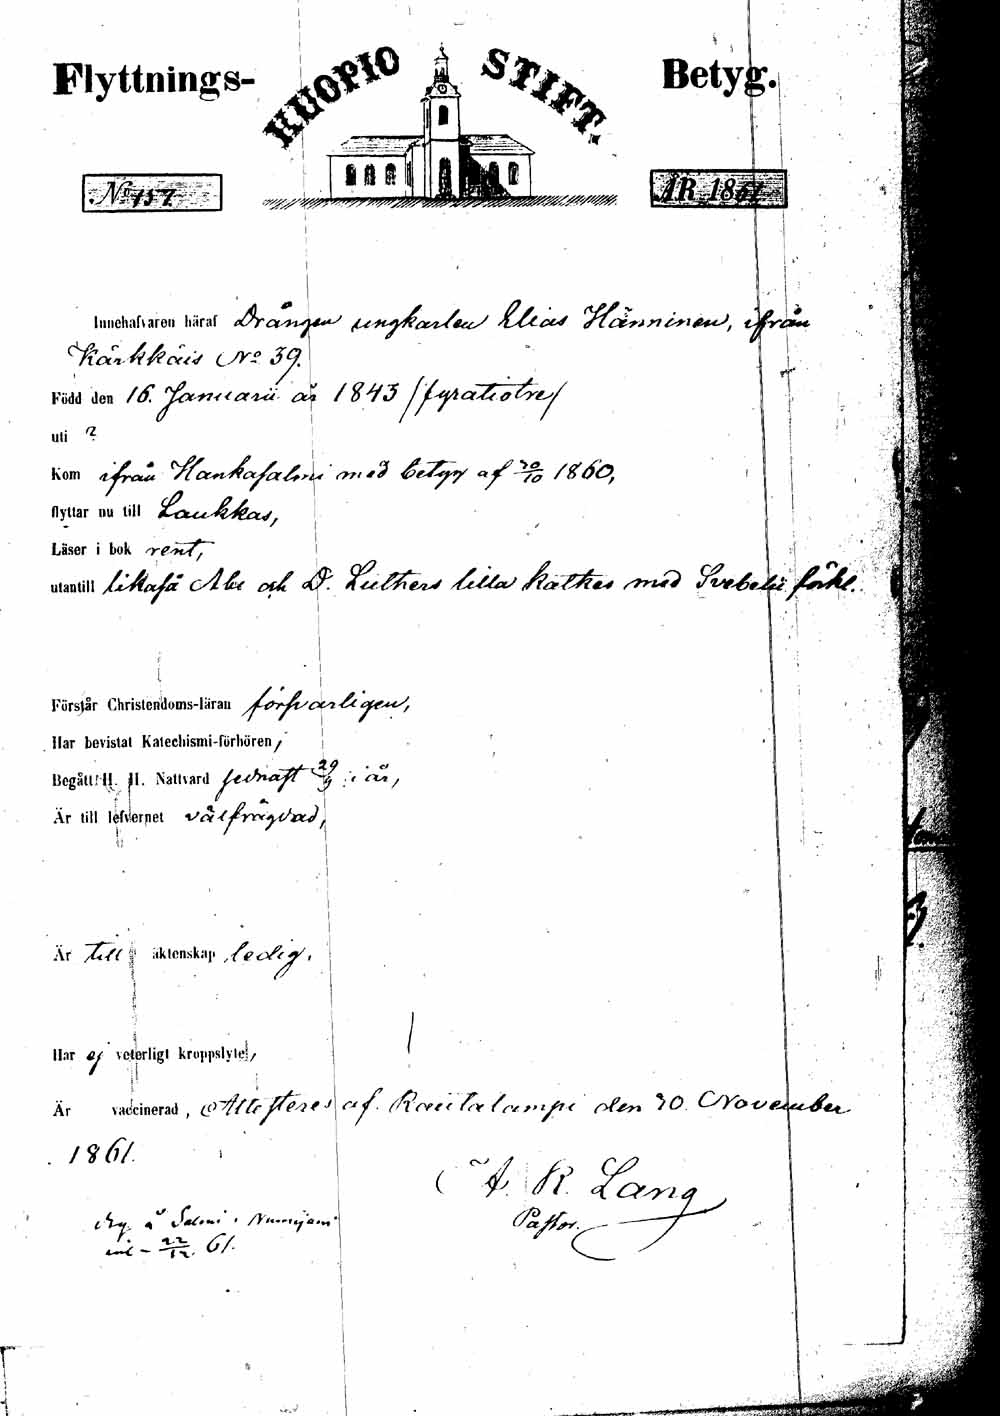 Flyttnings- KUOPIO STIFT. Betyg.
No 157. ÅR 1861
Innehafvaren häraf Drängen ungkarlen Elias Hänninen, ifrån
Kärkkäis No 39.
Född den 16. Januarii år 1843 /fyratiotre/
uti ?
Kom ifrån Hankasalmi med betyg af 20/10 1860,
flyttar nu till Laukkas,
Läser i bok rent,
utantill likaså Abc och D. Luthers lilla kathes med Svebelii förkl.
Förstår Christendoms-läran försvarligen,
Har bevistat Katechismi-förhören,
Begått H. H. Nattvard sednast 29/9 i år,
Är till lefvernet välfrägdad,
Är till äktenskap ledig.
Har ej veterligt kroppslyte,
Är vaccinerad, Attesteres af Rautalampi den 30 November
1861.
A. R. Lang
Pastor.
å Salmi
22/12 61.